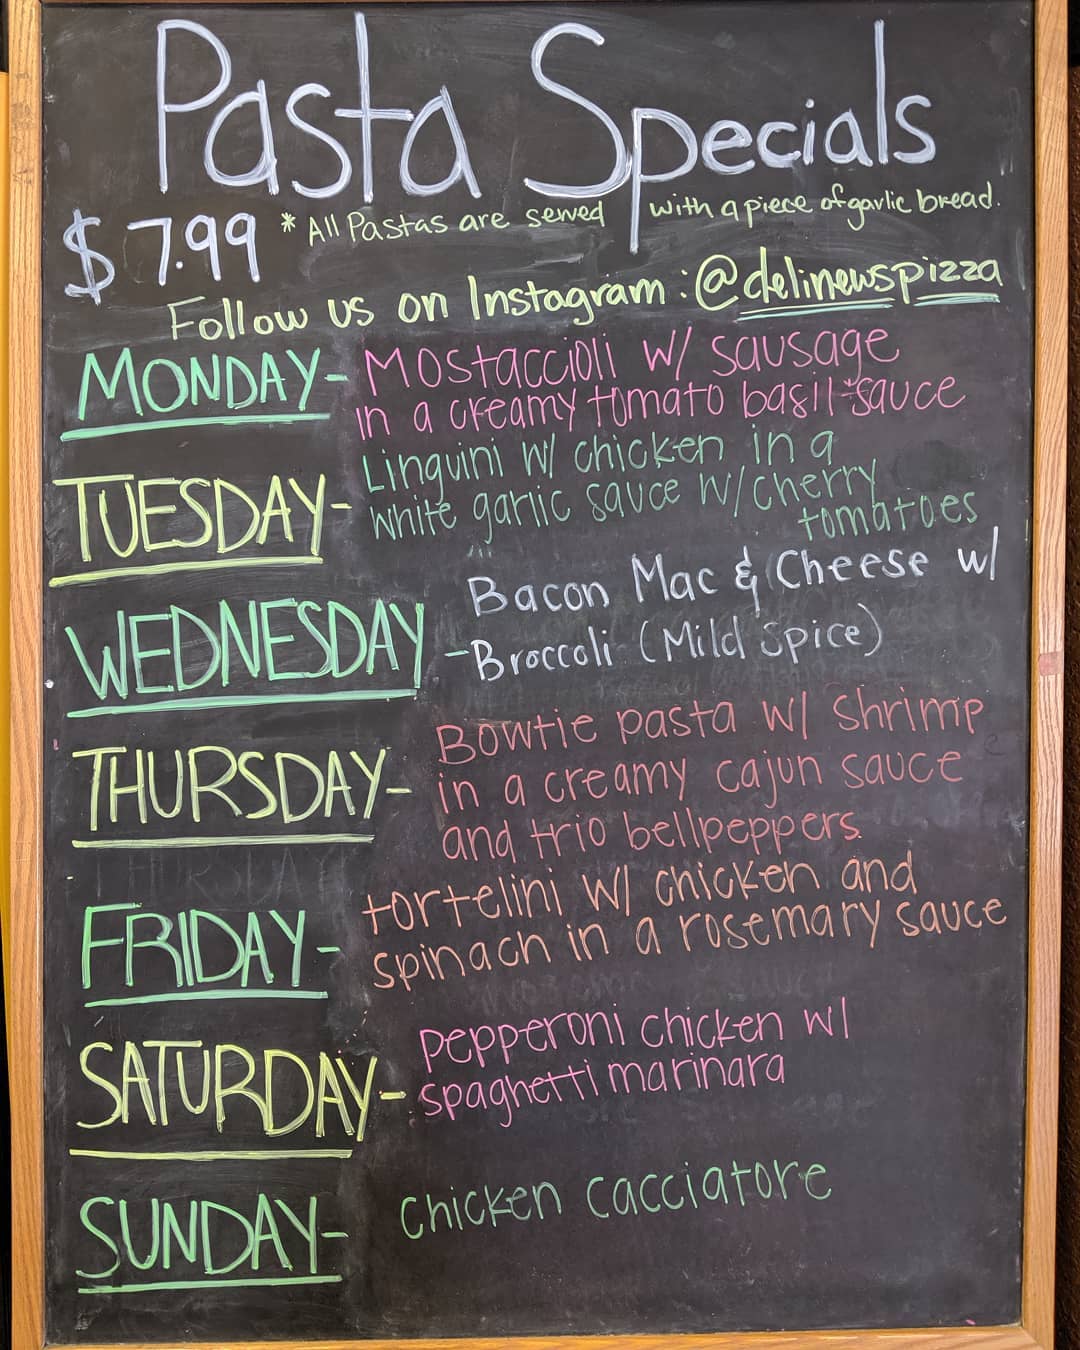 Pasta Specials
$7.99 * All Pastas are served with a piece of garlic bread.
Follow us on Instagram: @delinewspizza
MONDAY- Mostaccioli w/ sausage
in a creamy tomato basil sauce
TUESDAY- Linguini w/ chicken in a
white garlic sauce w/ cherry
tomatoes
WEDNESDAY - Bacon Mac & Cheese w/
Broccoli (Mild Spice)
THURSDAY- Bowtie pasta w/ Shrimp
in a creamy cajun sauce
and trio bellpeppers.
FRIDAY- tortelini w/ chicken and
spinach in a rosemary sauce
SATURDAY- pepperoni chicken w/
spaghetti marinara
SUNDAY- chicken cacciatore